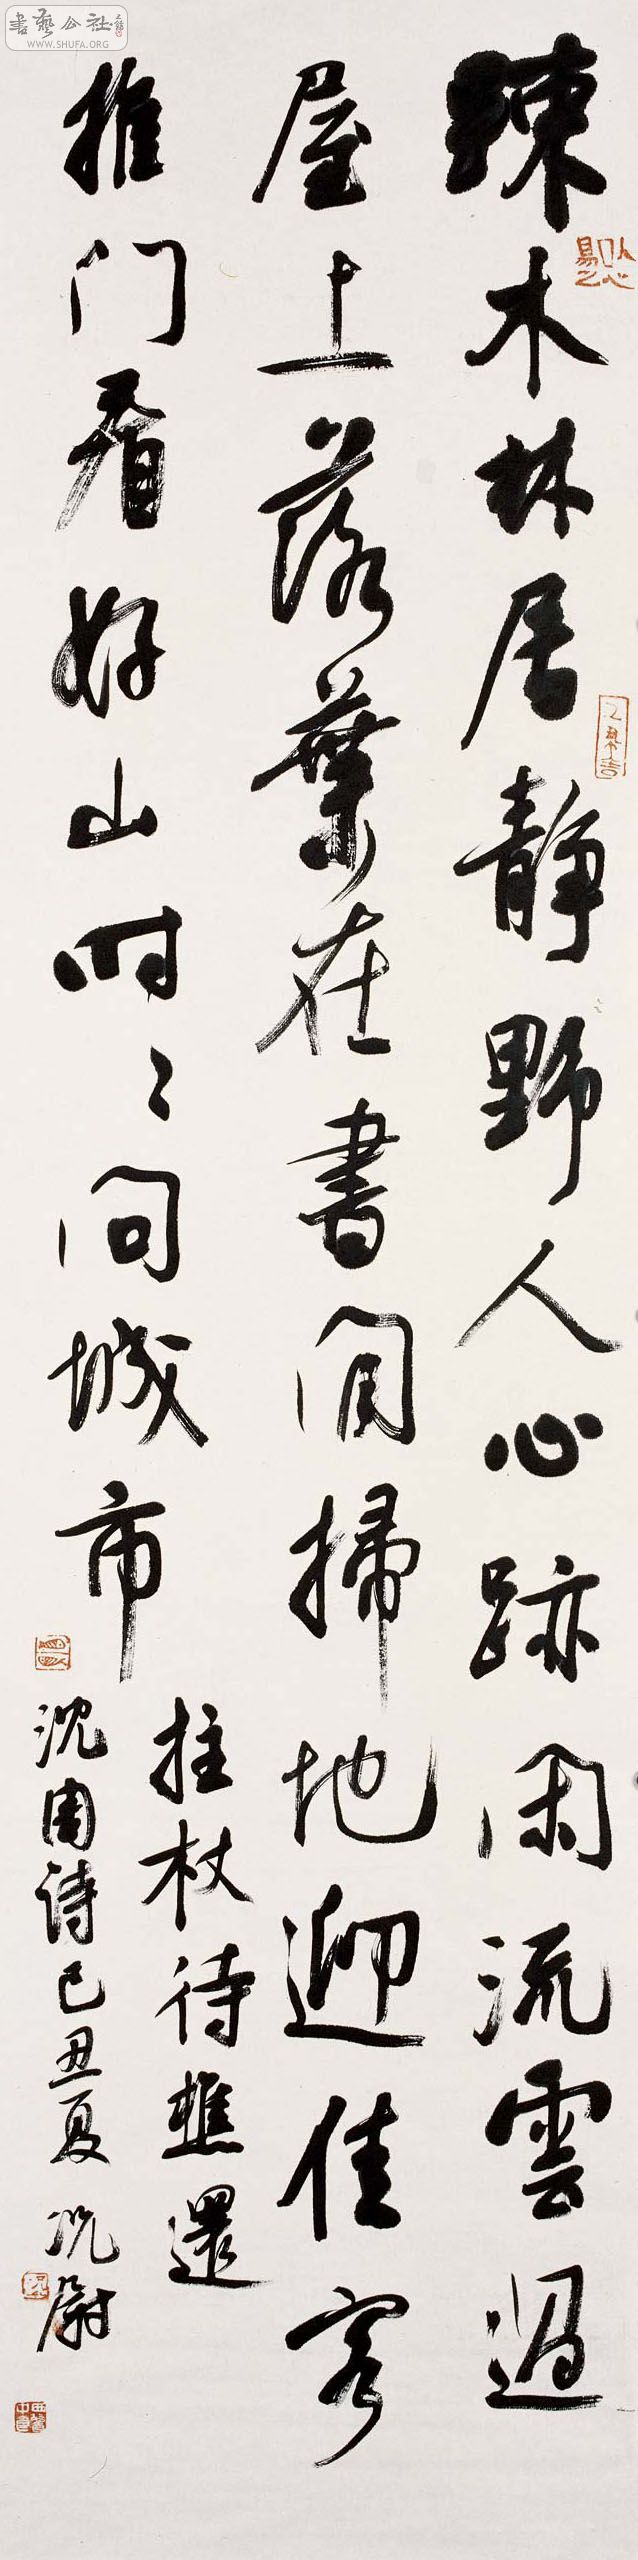 疎木林居静野人心跡閑流雲過
屋上落葉在書间掃地迎佳客
推门看好山時〻问城市
拄杖待樵還
沈周詩己丑夏况尉
書藝公社
WWW.SHUFA.ORG